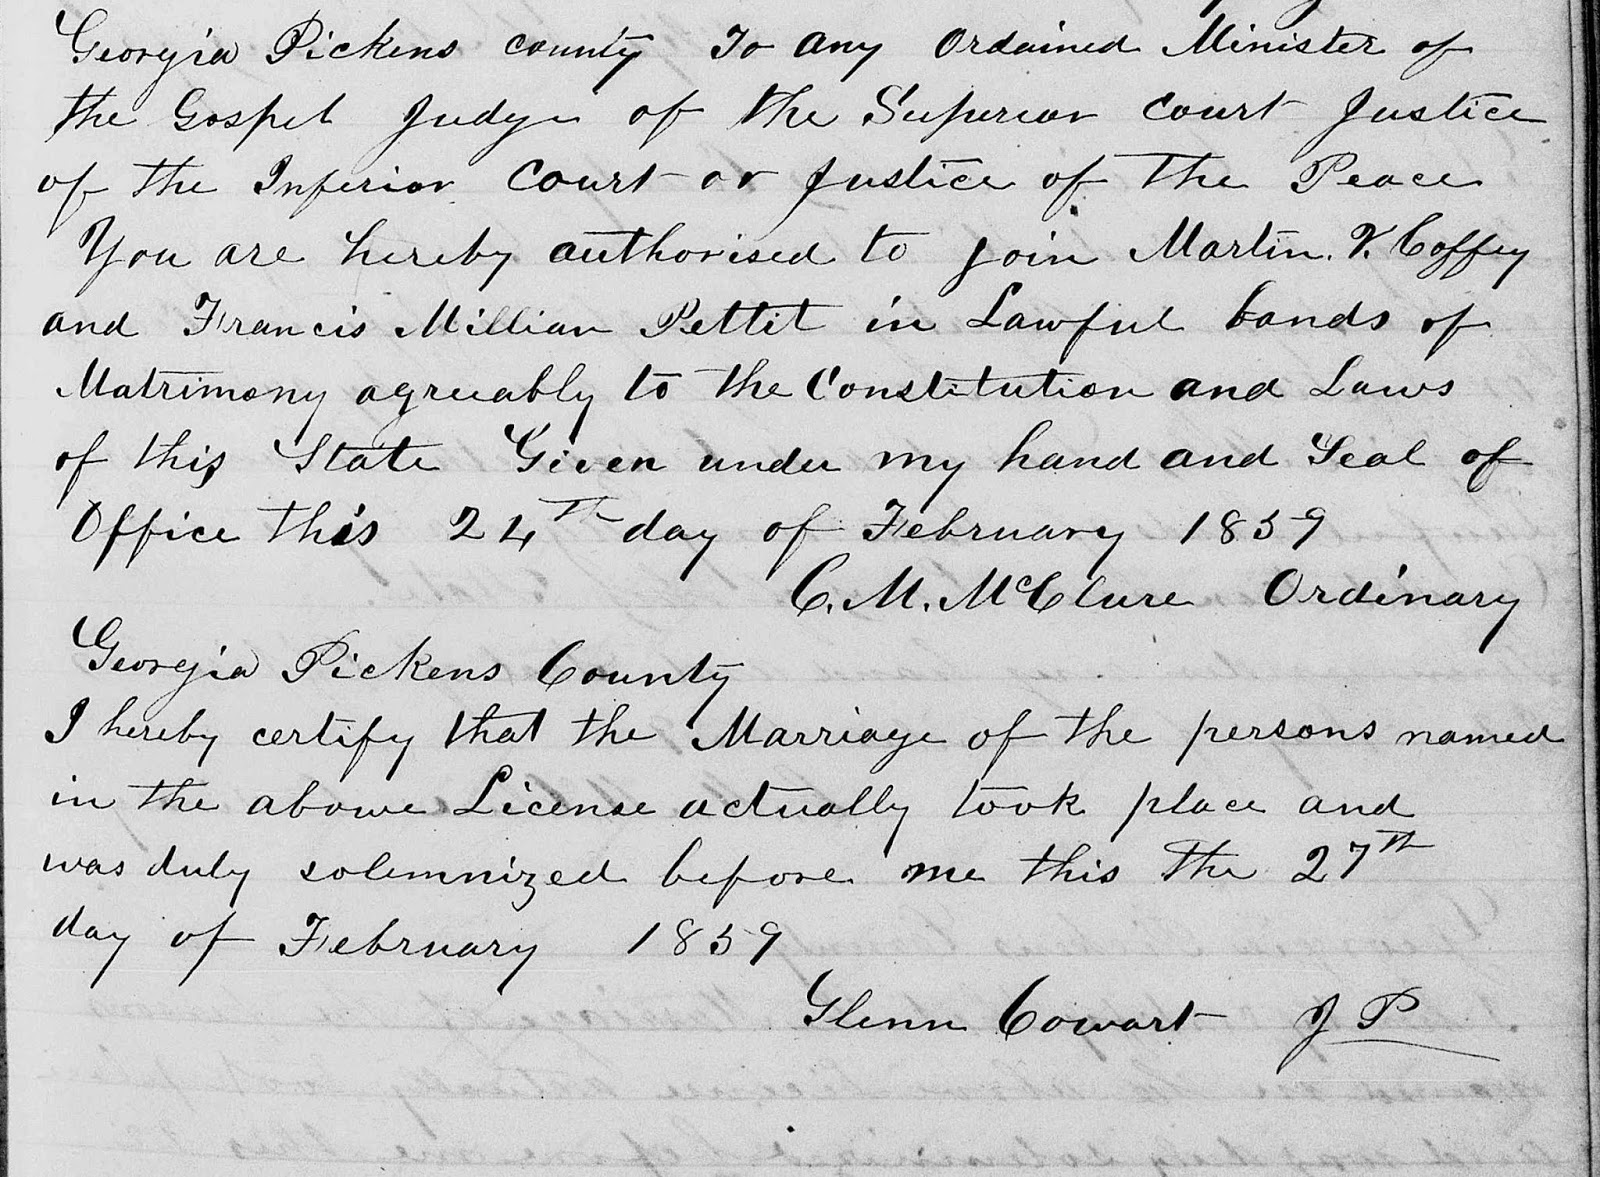 Georgia Pickens county To any Ordained Minister of
the Gospel Judge of the Superior court Justice
of the Inferior Court or Justice of the Peace
You are hereby authorised to join Martin. V. Coffey
and Francis Millian Pettit in Lawful bonds of
Matrimony agreeably to the Constitution and Laws
of this State Given under my hand and Seal of
Office this 24th day of February 1859
C. M. McClure Ordinary
Georgia Pickens County
I hereby certify that the Marriage of the persons named
in the above License actually took place and
was duly solemnized before me this the 27th
day of February 1859
Glenn Cowart J P